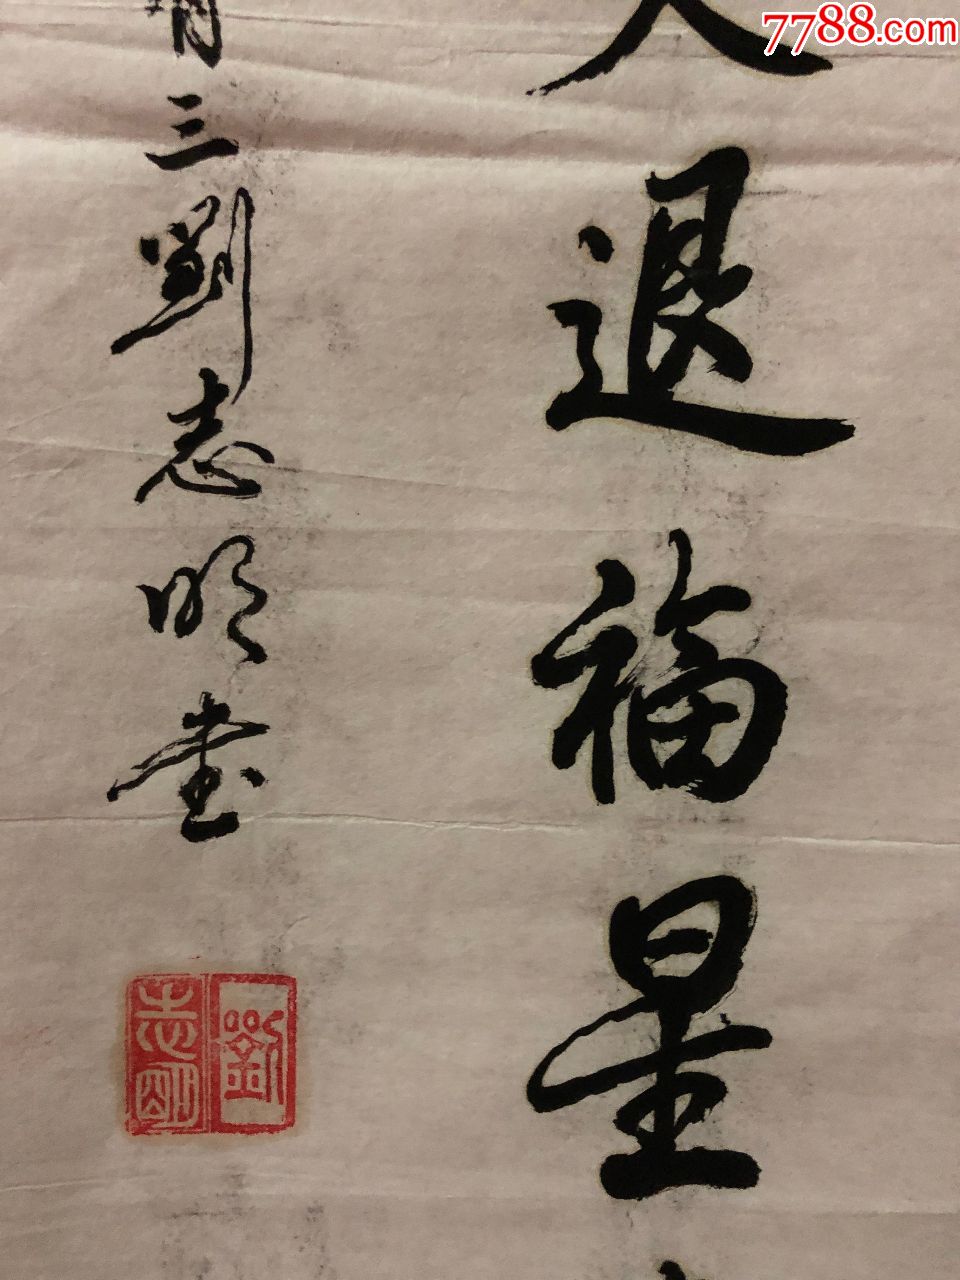 7788.com
人退福星
三劉志明書
劉志明